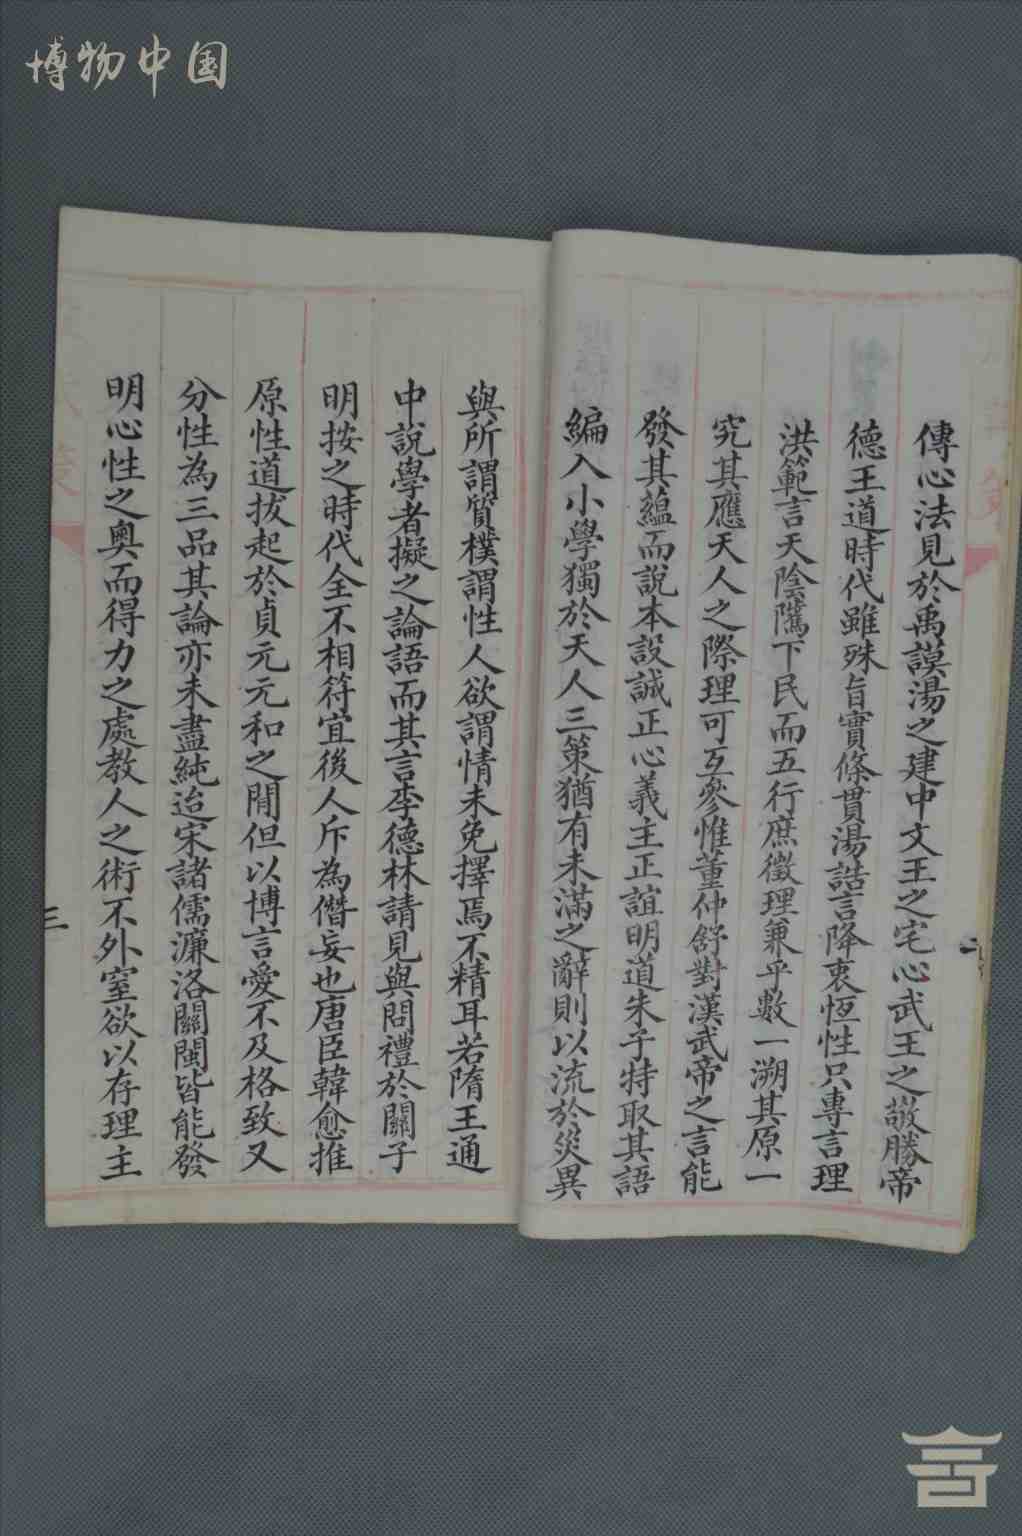 博物中国
傳心法見於禹謨湯之建中文王之宅心武王之敬勝帝
德王道時代雖殊旨實條貫湯誥言降衷恆性只專言理
洪範言天陰隲下民而五行庶徵理兼乎數一溯其原一
究其應天人之際理可互參惟董仲舒對漢武帝之言能
發其蘊而說本設誠正心義主正誼明道朱子特取其語
編入小學獨於天人三策猶有未滿之辭則以流於災異
與所謂質樸謂性人欲謂情未免擇焉不精耳若隋王通
中說學者擬之論語而其言李德林請見與問禮於關子
明按之時代全不相符宜後人斥為僭妄也唐臣韓愈推
原性道拔起於貞元元和之間但以博言愛不及格致又
分性為三品其論亦未盡純迨宋諸儒濂洛關閩皆能發
明心性之奧而得力之處教人之術不外窒欲以存理主
三